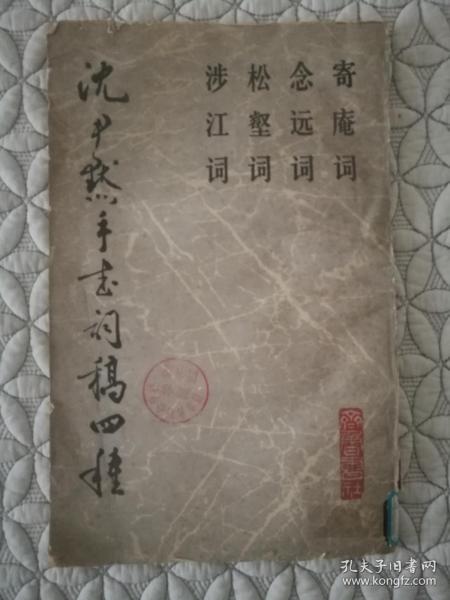 寄庵词
念远词
松壑词
涉江词
沈尹默手书词稿四种
齐鲁书社
孔夫子旧书网
www.kongfz.com